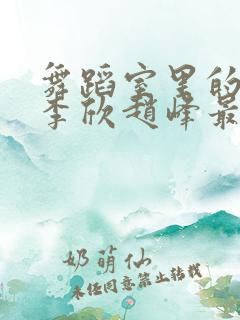 舞蹈室里的
李欣赵峰最
奶萌仙
未经同意禁止转载